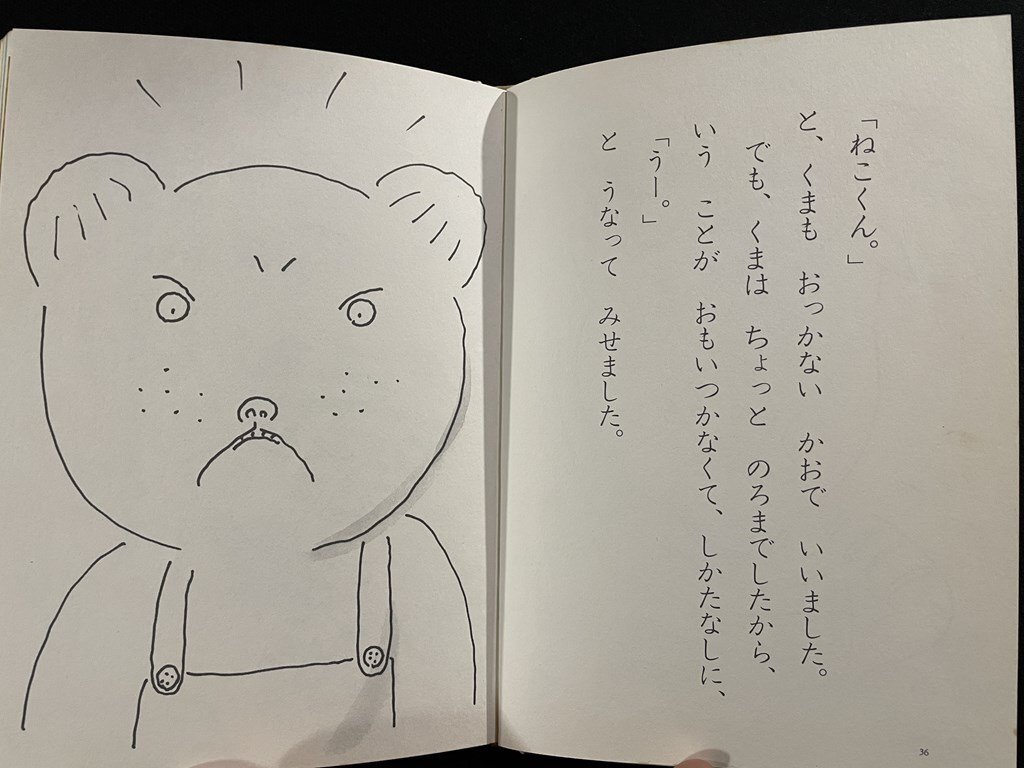 「ねこくん。」
と、くまも　おっかない　かおで　いいました。
でも、くまは　ちょっと　のろまでしたから、
いう　ことが　おもいつかなくて、しかたなしに、
「うー。」
と　うなって　みせました。
36